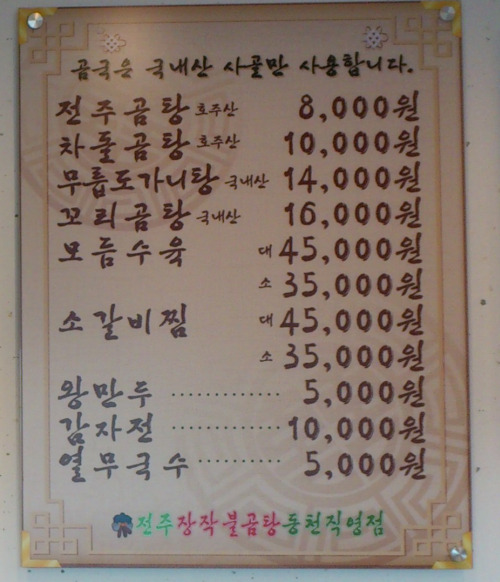 곰국은 국내산 사골만 사용합니다.
전주곰탕 호주산 8,000원
차돌곰탕 호주산 10,000원
무릎도가니탕 국내산 14,000원
꼬리곰탕 국내산 16,000원
모듬수육 대 45,000원
소 35,000원
소갈비찜 대 45,000원
소 35,000원
왕만두 ·············· 5,000원
감자전 ·············· 10,000원
열무국수 ············ 5,000원
전주장작불곰탕동천직영점